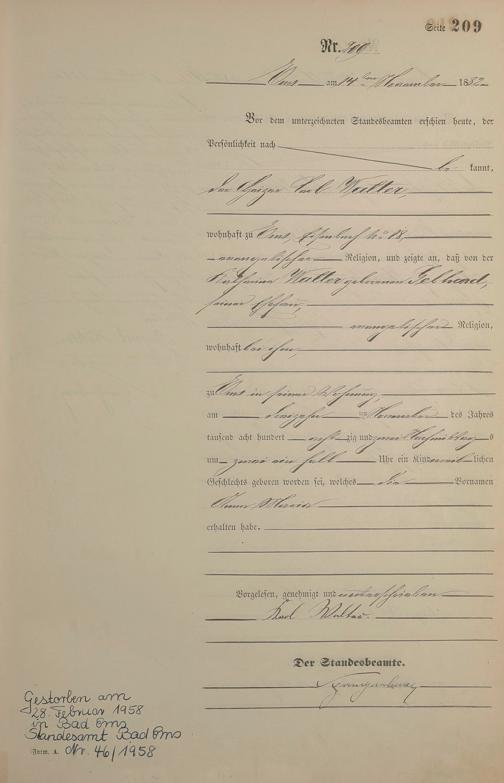 Seite 209
Nr. 209
Ems am 14ten November 1882
Vor dem unterzeichneten Standesbeamten erschien heute, der
Persönlichkeit nach
be kannt,
der Heizer Carl Walter,
wohnhaft zu Ems,
evangelischer Religion, und zeigte an, daß von der
Katharina Walter geborenen Gebhard,
seiner Ehefrau,
evangelischer Religion,
wohnhaft bei ihm,
zu Ems in seiner Wohnung,
am dreizehnten November des Jahres
tausend acht hundert acht zig und zwei Nachmittags
um Uhr ein Kind weiblichen
Geschlechts geboren worden sei, welches die Vornamen
Anna Maria
erhalten habe.
Vorgelesen, genehmigt und unterschrieben
Karl Walter.
Der Standesbeamte.
Gestorben am
28. Februar 1958
in Bad Ems
Standesamt Bad Ems
Form. A. Nr. 46/1958